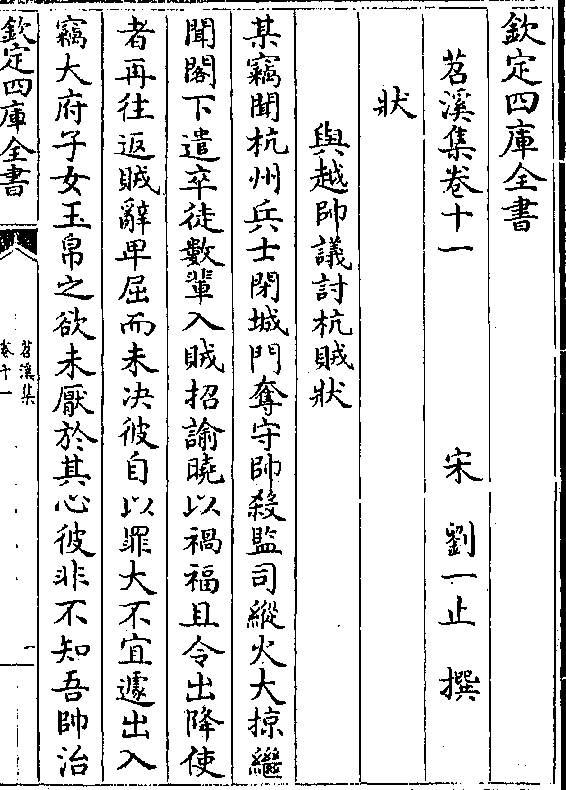 欽定四庫全書
苕溪集卷十一　宋　劉一止　撰
狀
與越帥議討杭賊狀
某竊聞杭州兵士閉城門奪守帥殺監司縱火大掠繼
聞閣下遣卒徒數輩入賊招諭曉以禍福且令出降使
者再往返賊辭卑屈而未决彼自以罪大不宜遽出入
竊大府子女玉帛之欲未厭於其心彼非不知吾帥治
欽定四庫全書
苕溪集
卷十一
一